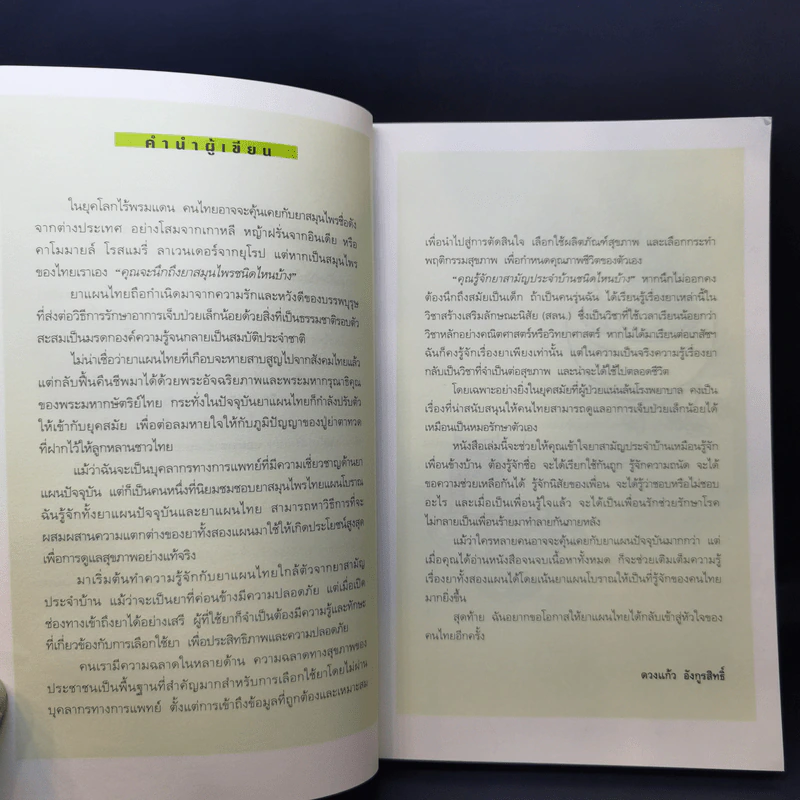 คำนำผู้เขียน
ในยุคโลกไร้พรมแดน คนไทยอาจจะคุ้นเคยกับยาสมุนไพรชื่อดัง
จากต่างประเทศ อย่างโสมจากเกาหลี หญ้าฝรันจากอินเดีย หรือ
คาโมมายล์ โรสแมรี่ ลาเวนเดอร์จากยุโรป แต่หากเป็นสมุนไพร
ของไทยเราเอง "คุณจะนึกถึงยาสมุนไพรชนิดไหนบ้าง"
ยาแผนไทยถือกำเนิดมาจากความรักและหวังดีของบรรพบุรุษ
ที่ส่งต่อวิธีการรักษาอาการเจ็บป่วยเล็กน้อยด้วยสิ่งที่เป็นธรรมชาติรอบตัว
สะสมเป็นมรดกองค์ความรู้จนกลายเป็นสมบัติประจำชาติ
ไม่น่าเชื่อว่ายาแผนไทยที่เกือบจะหายสาบสูญไปจากสังคมไทยแล้ว
แต่กลับฟื้นคืนชีพมาได้ด้วยพระอัจฉริยภาพและพระมหากรุณาธิคุณ
ของพระมหากษัตริย์ไทย กระทั่งในปัจจุบันยาแผนไทยก็กำลังปรับตัว
ให้เข้ากับยุคสมัย เพื่อต่อลมหายใจให้กับภูมิปัญญาของปู่ย่าตาทวด
ที่ฝากไว้ให้ลูกหลานชาวไทย
แม้ว่าฉันจะเป็นบุคลากรทางการแพทย์ที่มีความเชี่ยวชาญด้านยา
แผนปัจจุบัน แต่ก็เป็นคนหนึ่งที่นิยมชมชอบยาสมุนไพรไทยแผนโบราณ
ฉันรู้จักทั้งยาแผนปัจจุบันและยาแผนไทย สามารถหาวิธีการที่จะ
ผสมผสานความแตกต่างของยาทั้งสองแผนมาใช้ให้เกิดประโยชน์สูงสุด
เพื่อการดูแลสุขภาพอย่างแท้จริง
มาเริ่มต้นทำความรู้จักกับยาแผนไทยใกล้ตัวจากยาสามัญ
ประจำบ้าน แม้ว่าจะเป็นยาที่ค่อนข้างมีความปลอดภัย แต่เมื่อเปิด
ช่องทางเข้าถึงยาได้อย่างเสรี ผู้ที่ใช้ยาก็จำเป็นต้องมีความรู้และทักษะ
ที่เกี่ยวข้องกับการเลือกใช้ยา เพื่อประสิทธิภาพและความปลอดภัย
คนเรามีความฉลาดในหลายด้าน ความฉลาดทางสุขภาพของ
ประชาชนเป็นพื้นฐานที่สำคัญมากสำหรับการเลือกใช้ยาโดยไม่ผ่าน
บุคลากรทางการแพทย์ ตั้งแต่การเข้าถึงข้อมูลที่ถูกต้องและเหมาะสม
เพื่อนำไปสู่การตัดสินใจ เลือกใช้ผลิตภัณฑ์สุขภาพ และเลือกกระทำ
พฤติกรรมสุขภาพ เพื่อกำหนดคุณภาพชีวิตของตัวเอง
"คุณรู้จักยาสามัญประจำบ้านชนิดไหนบ้าง" หากนึกไม่ออกคง
ต้องนึกถึงสมัยเป็นเด็ก ถ้าเป็นคนรุ่นฉัน ได้เรียนรู้เรื่องยาเหล่านี้ใน
วิชาสร้างเสริมลักษณะนิสัย (สลน.) ซึ่งเป็นวิชาที่ใช้เวลาเรียนน้อยกว่า
วิชาหลักอย่างคณิตศาสตร์หรือวิทยาศาสตร์ หากไม่ได้มาเรียนต่อเภสัชฯ
ฉันก็คงรู้จักเรื่องยาเพียงเท่านั้น แต่ในความเป็นจริงความรู้เรื่องยา
กลับเป็นวิชาที่จำเป็นต่อสุขภาพ และน่าจะได้ใช้ไปตลอดชีวิต
โดยเฉพาะอย่างยิ่งในยุคสมัยที่ผู้ป่วยแน่นล้นโรงพยาบาล คงเป็น
เรื่องที่น่าสนับสนุนให้คนไทยสามารถดูแลอาการเจ็บป่วยเล็กน้อยได้
เหมือนเป็นหมอรักษาตัวเอง
หนังสือเล่มนี้จะช่วยให้คุณเข้าใจยาสามัญประจำบ้านเหมือนรู้จัก
เพื่อนข้างบ้าน ต้องรู้จักชื่อ จะได้เรียกใช้กันถูก รู้จักความถนัด จะได้
ขอความช่วยเหลือกันได้ รู้จักนิสัยของเพื่อน จะได้รู้ว่าชอบหรือไม่ชอบ
อะไร และเมื่อเป็นเพื่อนรู้ใจแล้ว จะได้เป็นเพื่อนรักช่วยรักษาโรค
ไม่กลายเป็นเพื่อนร้ายมาทำลายกันภายหลัง
แม้ว่าใครหลายคนอาจจะคุ้นเคยกับยาแผนปัจจุบันมากกว่า แต่
เมื่อคุณได้อ่านหนังสือจนจบเนื้อหาทั้งหมด ก็จะช่วยเติมเต็มความรู้
เรื่องยาทั้งสองแผนได้โดยเน้นยาแผนโบราณให้เป็นที่รู้จักของคนไทย
มากยิ่งขึ้น
สุดท้าย ฉันอยากขอโอกาสให้ยาแผนไทยได้กลับเข้าสู่หัวใจของ
คนไทยอีกครั้ง
ดวงแก้ว อังกูรสิทธิ์